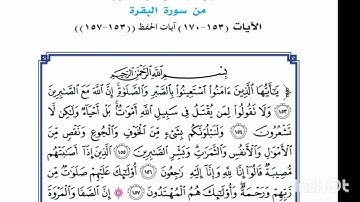 من سورة البقرة
الآيات (١٥٣-١٧٠) آيات الحفظ ((١٥٣-١٥٧))
بِسْمِ اللَّهِ الرَّحْمَٰنِ الرَّحِيمِ
﴿ يَٰٓأَيُّهَا ٱلَّذِينَ ءَامَنُوا۟ ٱسْتَعِينُوا۟ بِٱلصَّبْرِ وَٱلصَّلَوٰةِ إِنَّ ٱللَّهَ مَعَ ٱلصَّٰبِرِينَ
١٥٣ وَلَا تَقُولُوا۟ لِمَن يُقْتَلُ فِى سَبِيلِ ٱللَّهِ أَمْوَٰتٌۢ بَلْ أَحْيَآءٌ وَلَٰكِن لَّا
تَشْعُرُونَ ١٥٤ وَلَنَبْلُوَنَّكُم بِشَىْءٍ مِّنَ ٱلْخَوْفِ وَٱلْجُوعِ وَنَقْصٍ مِّنَ
ٱلْأَمْوَٰلِ وَٱلْأَنفُسِ وَٱلثَّمَرَٰتِ وَبَشِّرِ ٱلصَّٰبِرِينَ ١٥٥ ٱلَّذِينَ إِذَآ أَصَٰبَتْهُم
مُّصِيبَةٌ قَالُوٓا۟ إِنَّا لِلَّهِ وَإِنَّآ إِلَيْهِ رَٰجِعُونَ ١٥٦ أُو۟لَٰٓئِكَ عَلَيْهِمْ صَلَوَٰتٌ مِّن
رَّبِّهِمْ وَرَحْمَةٌ وَأُو۟لَٰٓئِكَ هُمُ ٱلْمُهْتَدُونَ ١٥٧ إِنَّ ٱلصَّفَا وَٱلْمَرْوَةَ
InShot